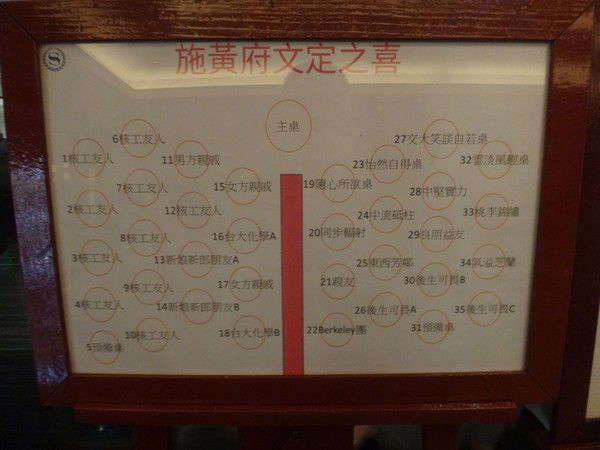 S
施黃府文定之喜
主桌
1核工友人
2核工友人
3核工友人
4核工友人
5預備桌
6核工友人
7核工友人
8核工友人
9核工友人
10核工友人
11男方親戚
12核工友人
13新娘新郎朋友A
14新娘新郎朋友B
15女方親戚
16台大化學A
17女方親戚
18台大化學B
19隨心所欲桌
20同步輻射
21親友
22Berkeley團
23怡然自得桌
24中流砥柱
25東西芳鄰
26後生可畏A
27交大笑談自若桌
28中堅實力
29良朋益友
30後生可畏B
31預備桌
32雲淡風輕桌
33桃李錦繡
34氣溢芝蘭
35後生可畏C